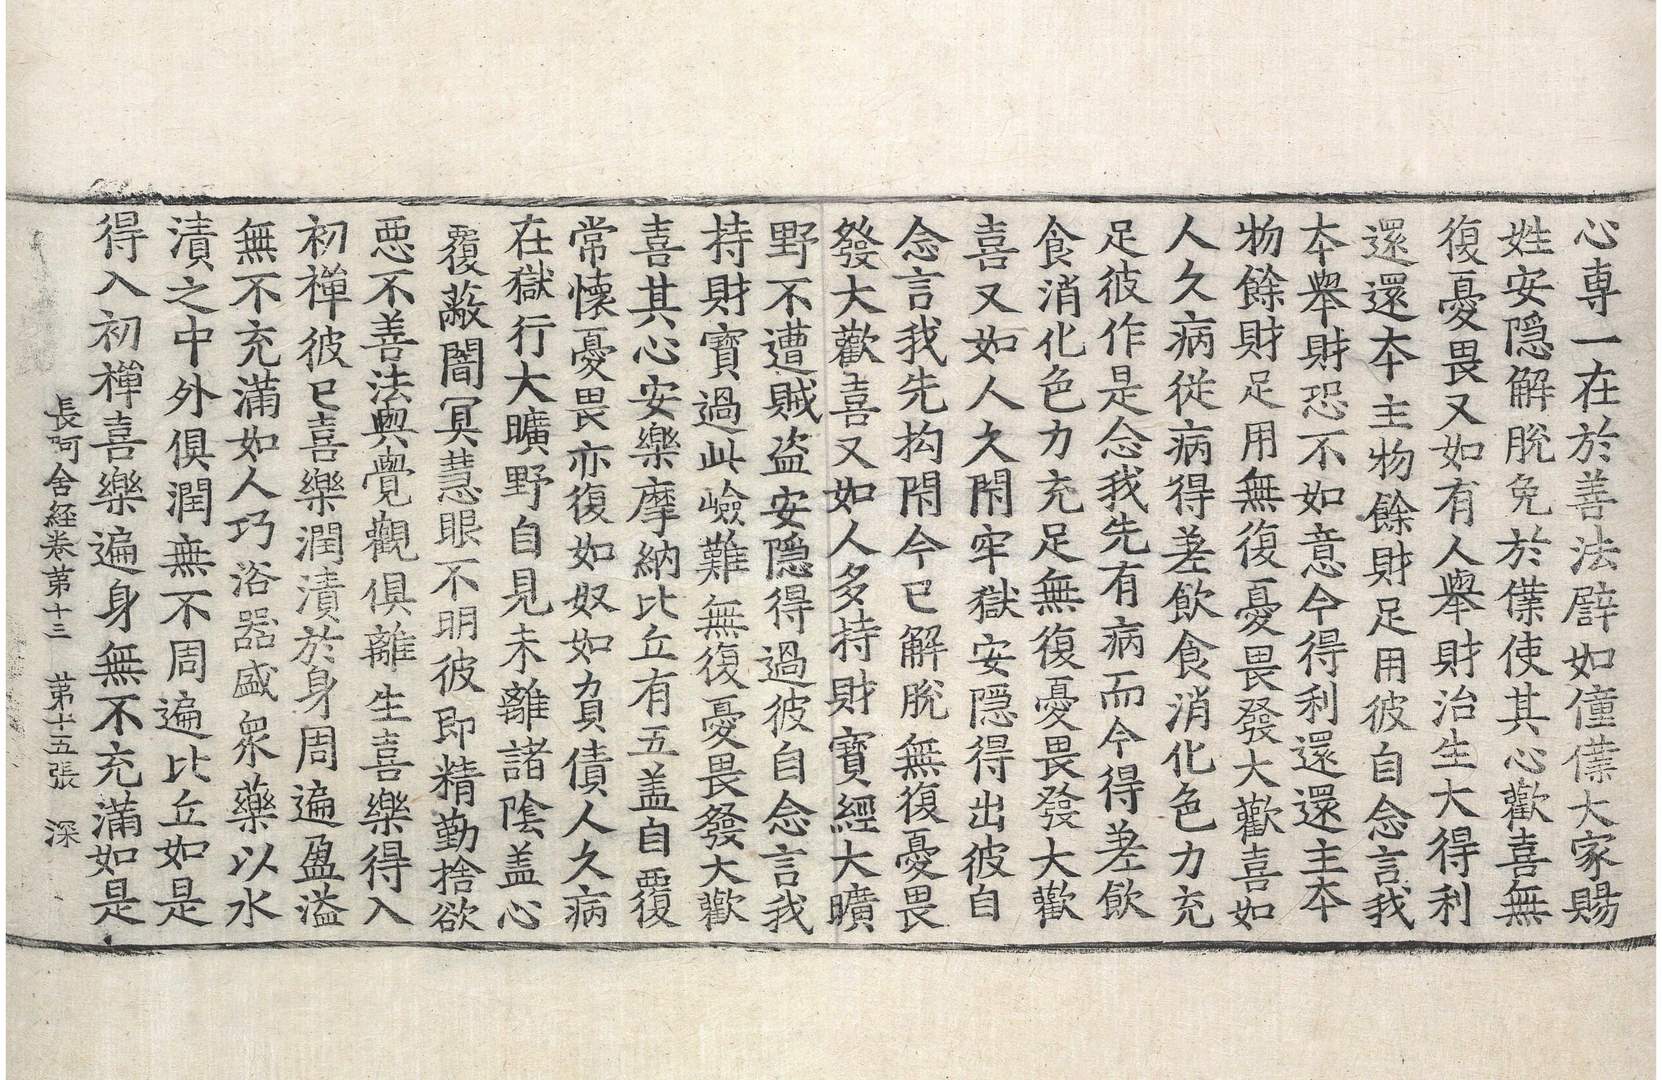 心專一在於善法譬如僮僕大家賜
姓安隱解脫免於僕使其心歡喜無
復憂畏又如有人舉財治生大得利
還還本主物餘財足用彼自念言我
本舉財恐不如意今得利還還主本
物餘財足用無復憂畏發大歡喜如
人久病從病得差飲食消化色力充
足彼作是念我先有病而今得差飲
食消化色力充足無復憂畏發大歡
喜又如人久閇牢獄安隱得出彼自
念言我先拘閇今已解脫無復憂畏
發大歡喜又如人多持財寶經大曠
野不遭賊盗安隱得過彼自念言我
持財寶過此嶮難無復憂畏發大歡
喜其心安樂摩納比丘有五盖自覆
常懷憂畏亦復如奴如負債人久病
在獄行大曠野自見未離諸陰盖心
覆蔽闇冥慧眼不明彼即精勤捨欲
惡不善法與覺觀俱離生喜樂得入
初禪彼已喜樂潤漬於身周遍盈溢
無不充滿如人巧浴器盛衆藥以水
漬之中外俱潤無不周遍比丘如是
得入初禪喜樂遍身無不充滿如是
長阿含経卷第十三 第十五張 深